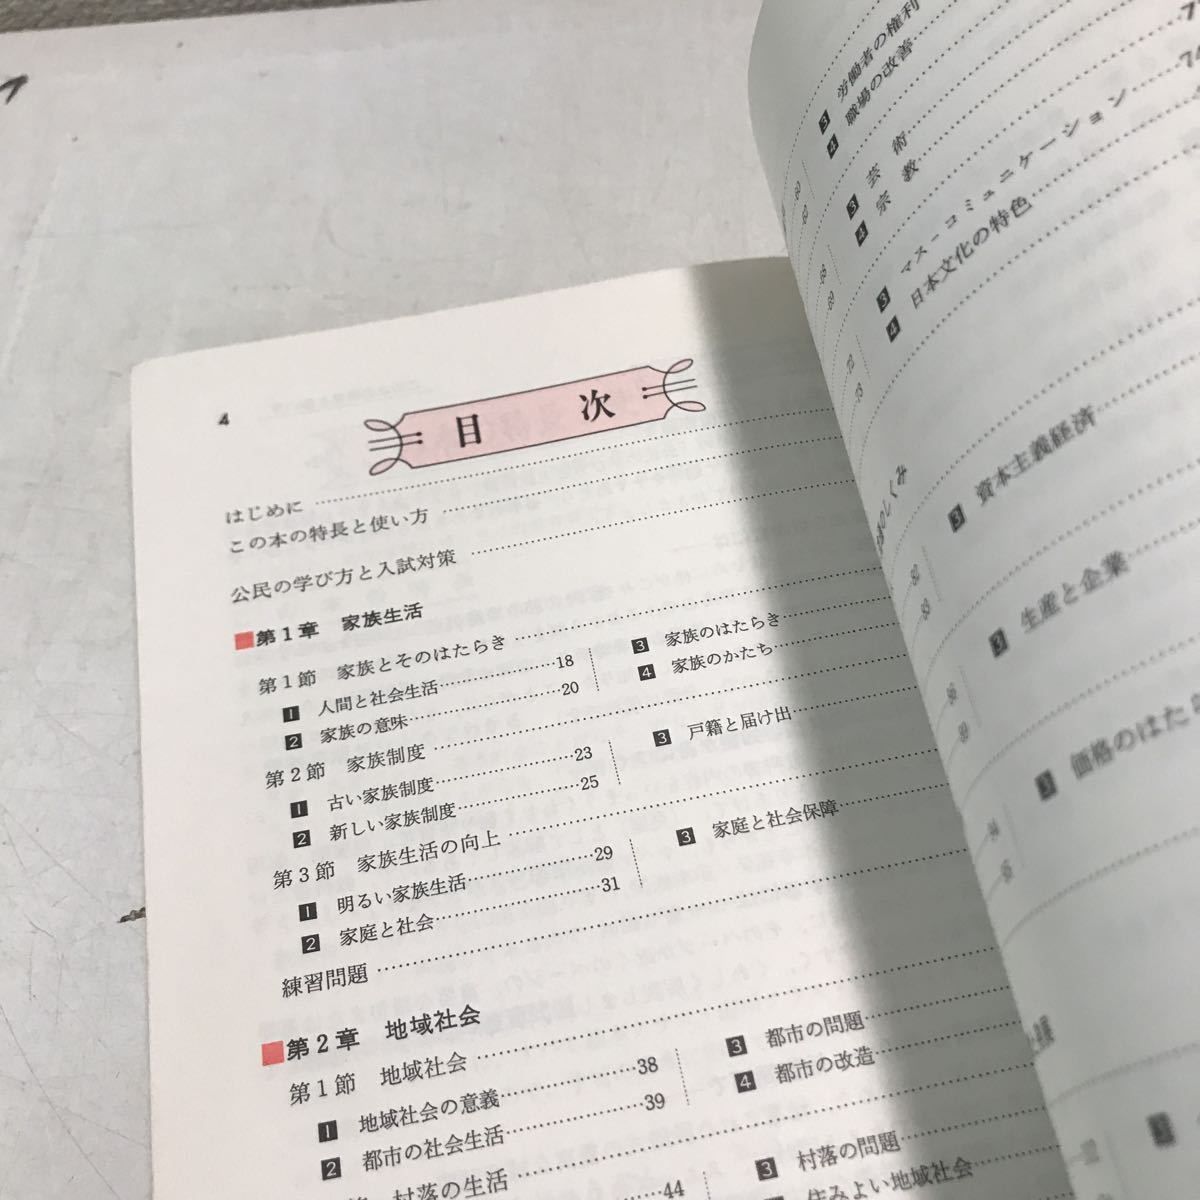 4
目次
はじめに
この本の特長と使い方
公民の学び方と入試対策
第1章 家族生活
第1節 家族とそのはたらき
1 人間と社会生活 18
2 家族の意味 20
3 家族のはたらき
4 家族のかたち
第2節 家族制度
1 古い家族制度 23
2 新しい家族制度 25
3 戸籍と届け出
第3節 家族生活の向上
1 明るい家族生活 29
2 家庭と社会 31
3 家庭と社会保障
練習問題
第2章 地域社会
第1節 地域社会
1 地域社会の意義 38
2 都市の社会生活 39
3 都市の問題
4 都市の改造
村落の生活 44
3 村落の問題
住みよい地域社会
3 労働者の権利
4 職場の改善 74
3 芸術
4 宗教
3 マス－コミュニケーション
4 日本文化の特色
のしくみ
3 資本主義経済
3 生産と企業
3 価格のはた